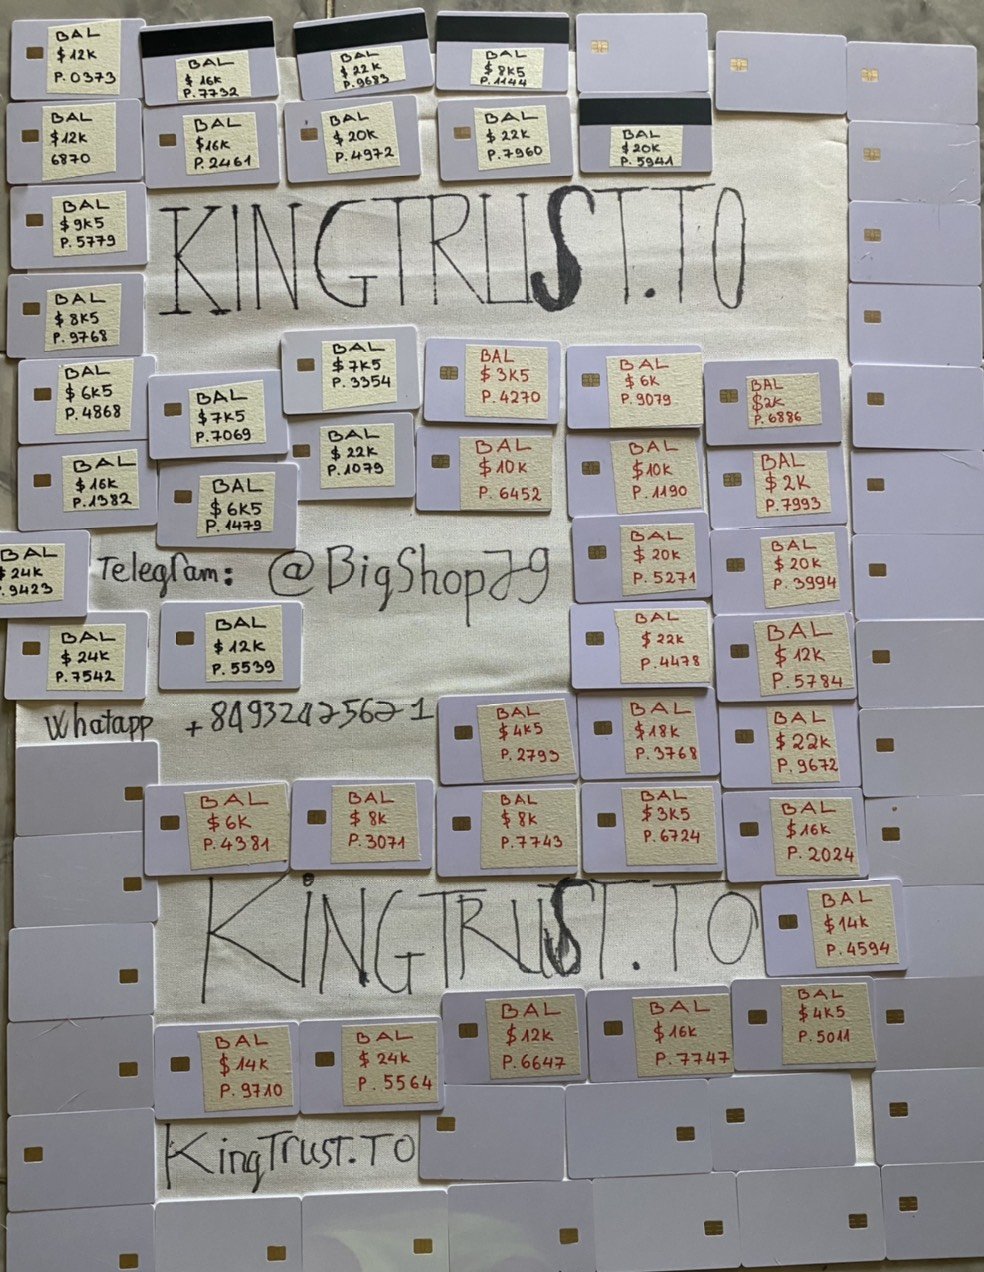 BAL
$12K
P.0373
BAL
$16K
P.7732
BAL
$22K
P.9683
BAL
$8K5
P.1144
BAL
$12K
6870
BAL
$16K
P.2461
BAL
$20K
P.4972
BAL
$22K
P.7960
BAL
$20K
P.5941
BAL
$9K5
P.5779
KINGTRUST.TO
BAL
$8K5
P.9768
BAL
$6K5
P.4868
BAL
$7K5
P.7069
BAL
$7K5
P.3354
BAL
$3K5
P.4270
BAL
$6K
P.9079
BAL
$2K
P.6886
BAL
$16K
P.1382
BAL
$6K5
P.1479
BAL
$22K
P.1079
BAL
$10K
P.6452
BAL
$10K
P.1190
BAL
$2K
P.7993
BAL
$24K
P.9423
Telegram:
BAL
$20K
P.5271
BAL
$20K
P.3994
BAL
$24K
P.7542
BAL
$12K
P.5539
BAL
$22K
P.4478
BAL
$12K
P.5784
Whatapp
BAL
$4K5
P.2793
BAL
$18K
P.3768
BAL
$22K
P.9672
BAL
$6K
P.4381
BAL
$8K
P.3071
BAL
$8K
P.7743
BAL
$3K5
P.6724
BAL
$16K
P.2024
KiNGTRUST.TO
BAL
$14K
P.4594
BAL
$14K
P.9710
BAL
$24K
P.5564
BAL
$12K
P.6647
BAL
$16K
P.7747
BAL
$4K5
P.5011
KingTrust.TO